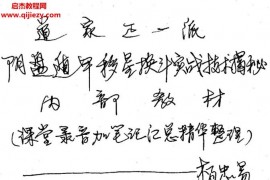 启杰教程网
www.qijiejc.com
道家正一派
阴盘遁甲移星换斗实战技术揭秘
内部教材
(课堂录音加笔记汇总精华整理)